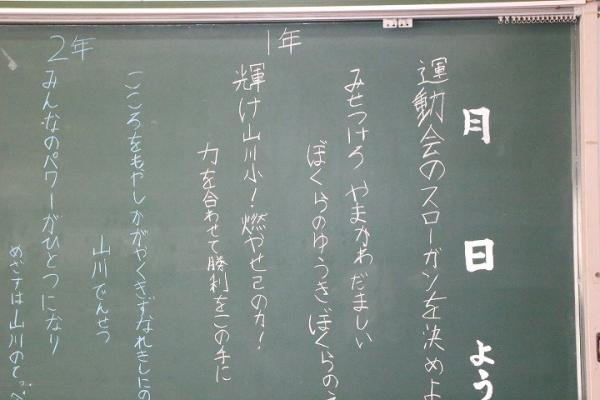 月 日 よう
運動会のスローガンを決めよ
1年
みせつけろ やまかわだましい
ぼくらのゆうき ぼくらの
輝け山川小！燃やせ己の力！
力を合わせて勝利をこの手に
2年
こころをもやし かがやくきずなれきしにの
山川でんせつ
みんなのパワーがひとつになり
めざすは山川のてっぺ